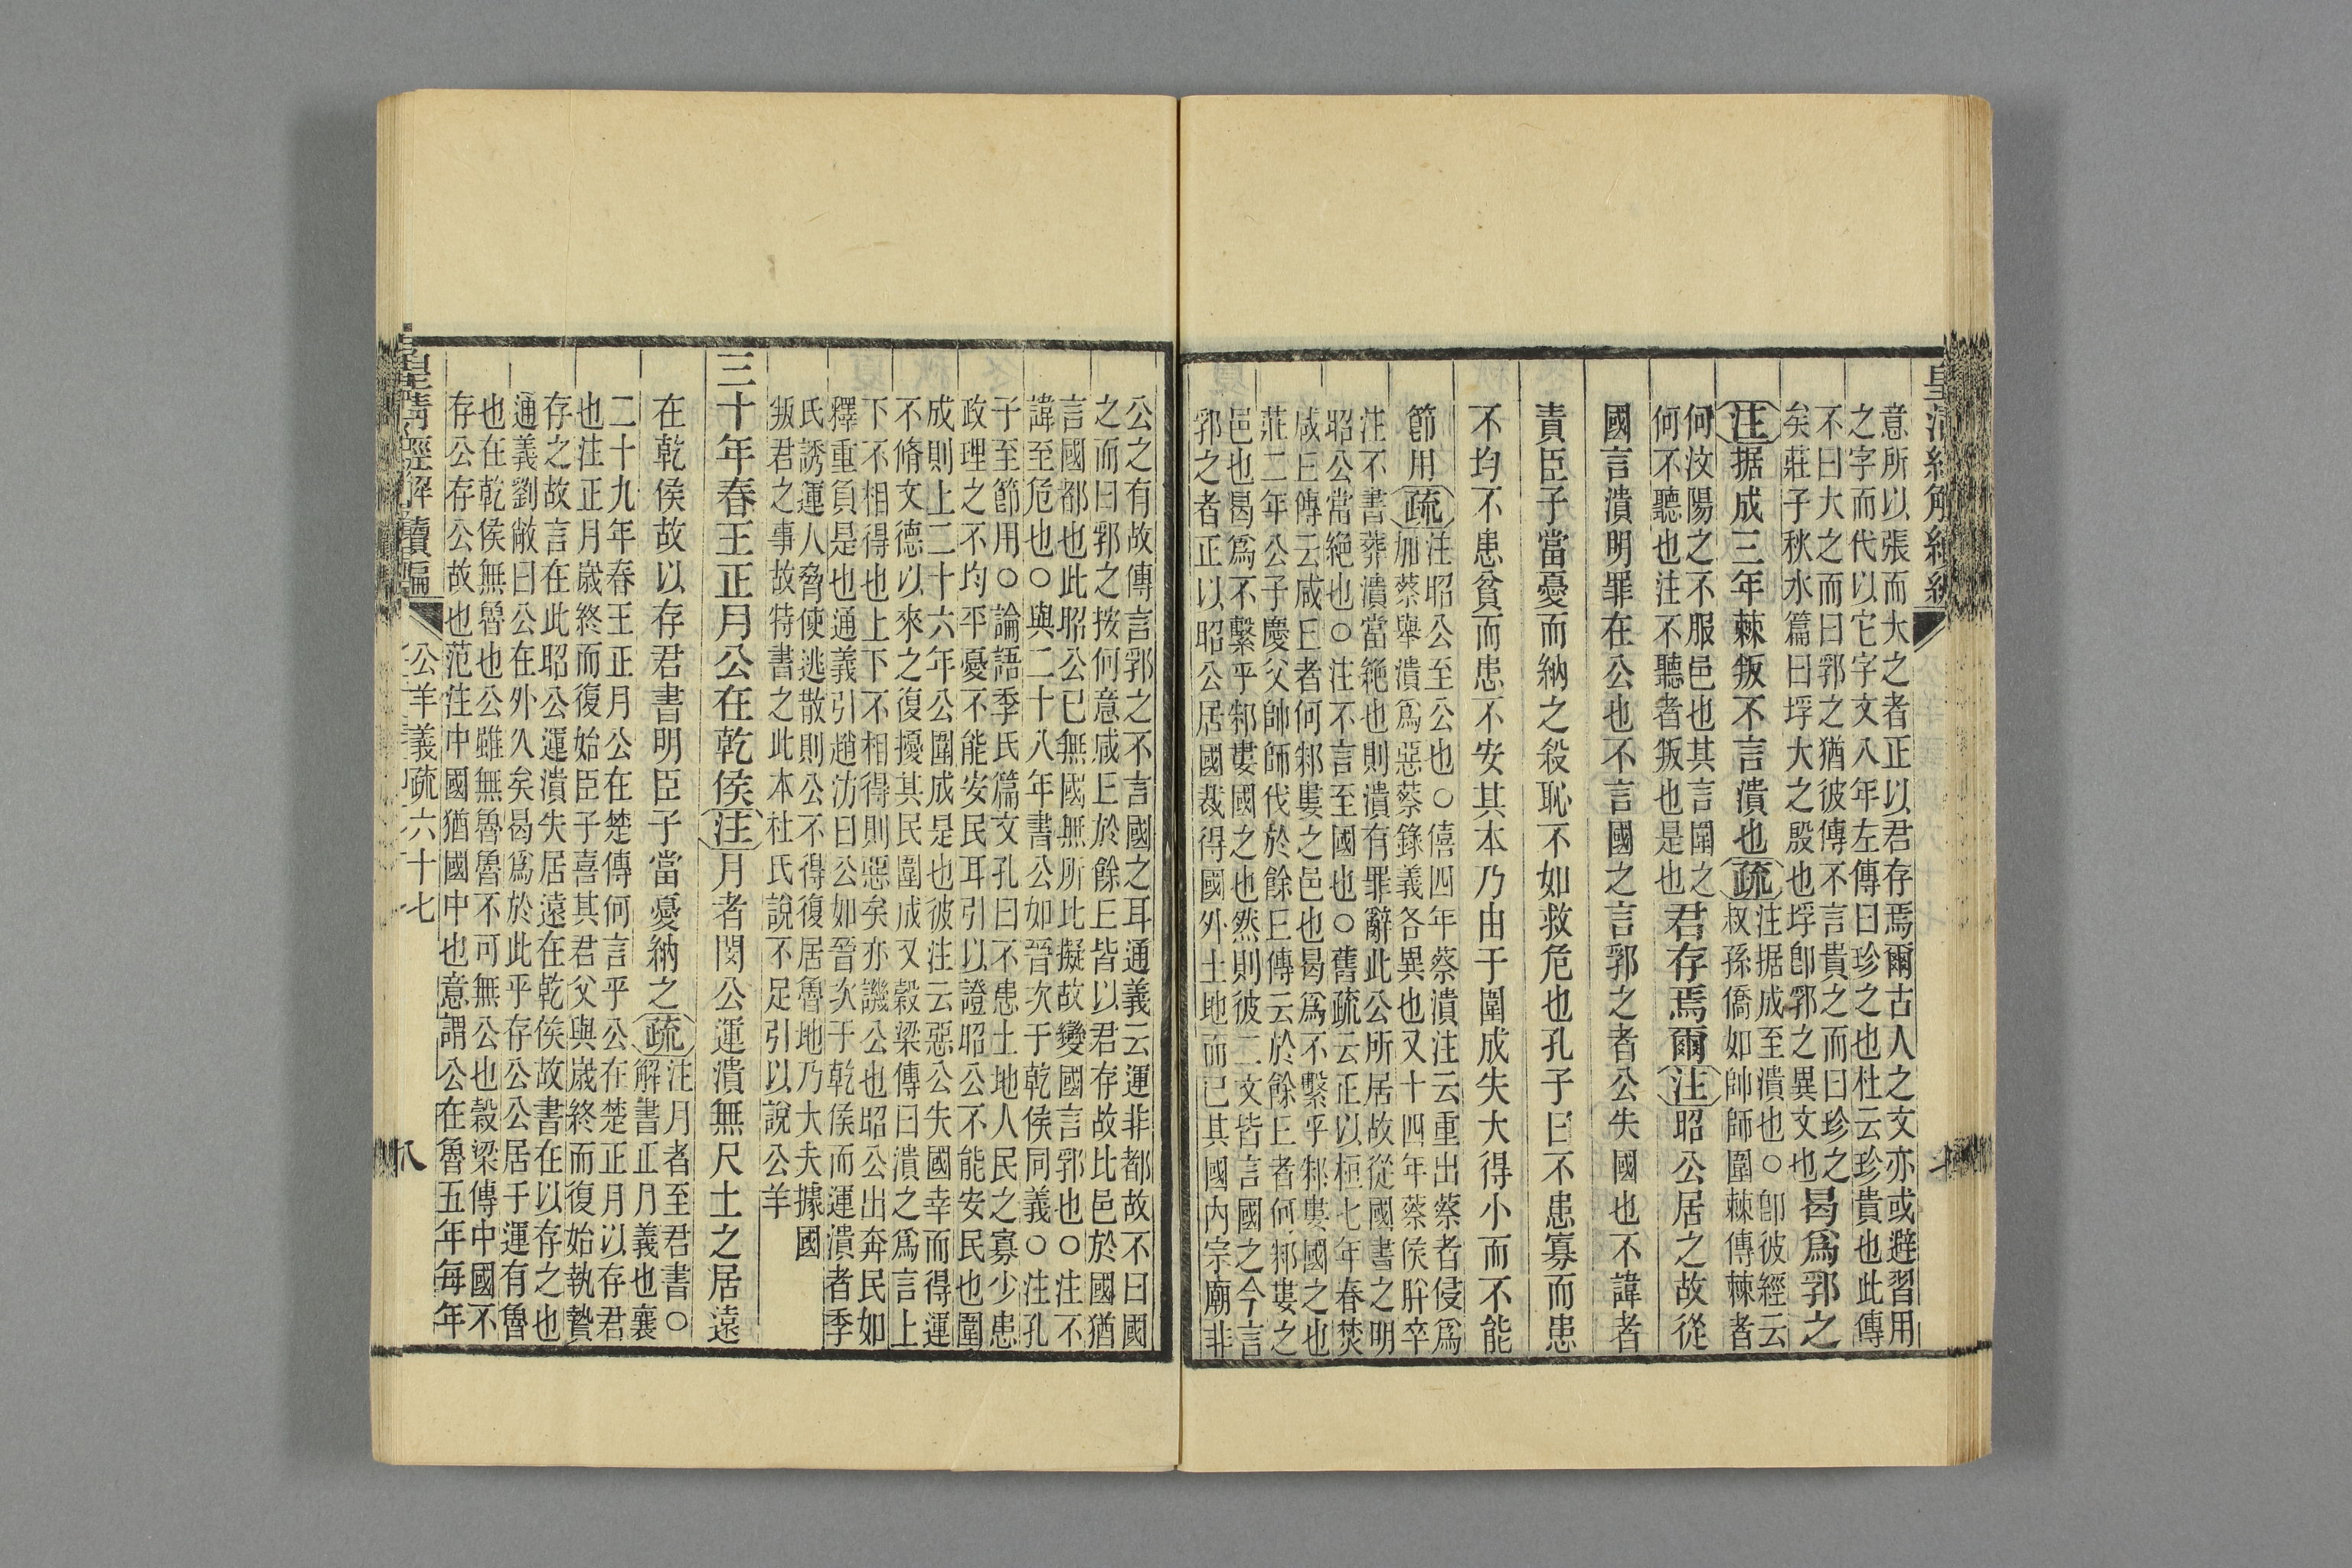 皇清經解續編
意所以張而大之者正以君存焉爾古人之文亦或避習用
之字而代以它字文八年左傳曰珍之也杜云珍貴也此傳
不曰大之而曰郛之猶彼傳不言貴之而曰珍之
矣莊子秋水篇曰垺大之殷也垺卽郛之異文也曷爲郛之
注据成三年棘叛不言潰也疏注据成至潰也○卽彼經云
叔孫僑如帥師圍棘傳棘者
何汶陽之不服邑也其言圍之
何不聽也注不聽者叛也是也君存焉爾注昭公居之故從
國言潰明罪在公也不言國之言郛之者公失國也不諱者
責臣子當憂而納之殺恥不如救危也孔子曰不患寡而患
不均不患貧而患不安其本乃由于圍成失大得小而不能
節用疏注昭公至公也○僖四年蔡潰注云重出蔡者侵爲
加蔡舉潰爲惡蔡錄義各異也又十四年蔡侯肸卒
注不書葬潰當絶也則潰有罪辭此公所居故從國書之明
昭公當絶也○注不言至國也○舊疏云正以桓七年春焚
咸𠀉傳云咸𠀉者何邾婁之邑也曷爲不繫乎邾婁國之也
莊二年公子慶父帥師伐於餘𠀉傳云於餘𠀉者何邾婁之
邑也曷爲不繫乎邾婁國之也然則彼二文皆言國之今言
郛之者正以昭公居國裁得國外土地而已其國內宗廟非
公之有故傳言郛之不言國之耳通義云運非都故不曰國
之而曰郛之按何意咸𠀉於餘𠀉皆以君存故比邑於國猶
言國都也此昭公已無國無所比擬故變國言郛也○注不
諱至危也○與二十八年書公如晉次于乾侯同義○注孔
子至節用○論語季氏篇文孔曰不患土地人民之寡少患
政理之不均平憂不能安民耳引以證昭公不能安民也圍
成則上二十六年公圍成是也彼注云惡公失國幸而得運
不脩文德以來之復擾其民圍成又穀梁傳曰潰之爲言上
下不相得也上下不相得則惡矣亦譏公也昭公出奔民如
釋重負是也通義引趙汸曰公如晉次于乾侯而運潰者季
氏誘運人脅使逃散則公不得復居魯地乃大夫據國
叛君之事故特書之此本杜氏說不足引以說公羊
三十年春王正月公在乾侯注月者閔公運潰無尺土之居遠
在乾侯故以存君書明臣子當憂納之疏注月者至君書○
解書正月義也襄
二十九年春王正月公在楚傳何言乎公在楚正月以存君
也注正月歲終而復始臣子喜其君父與歲終而復始執贄
存之故言在此昭公運潰失居遠在乾侯故書在以存之也
通義劉敞曰公在外久矣曷爲於此乎存公公居于運有魯
也在乾侯無魯也公雖無魯魯不可無公也穀梁傳中國不
存公存公故也范注中國猶國中也意謂公在魯五年每年
皇清經解續編 公羊義疏六十七 八